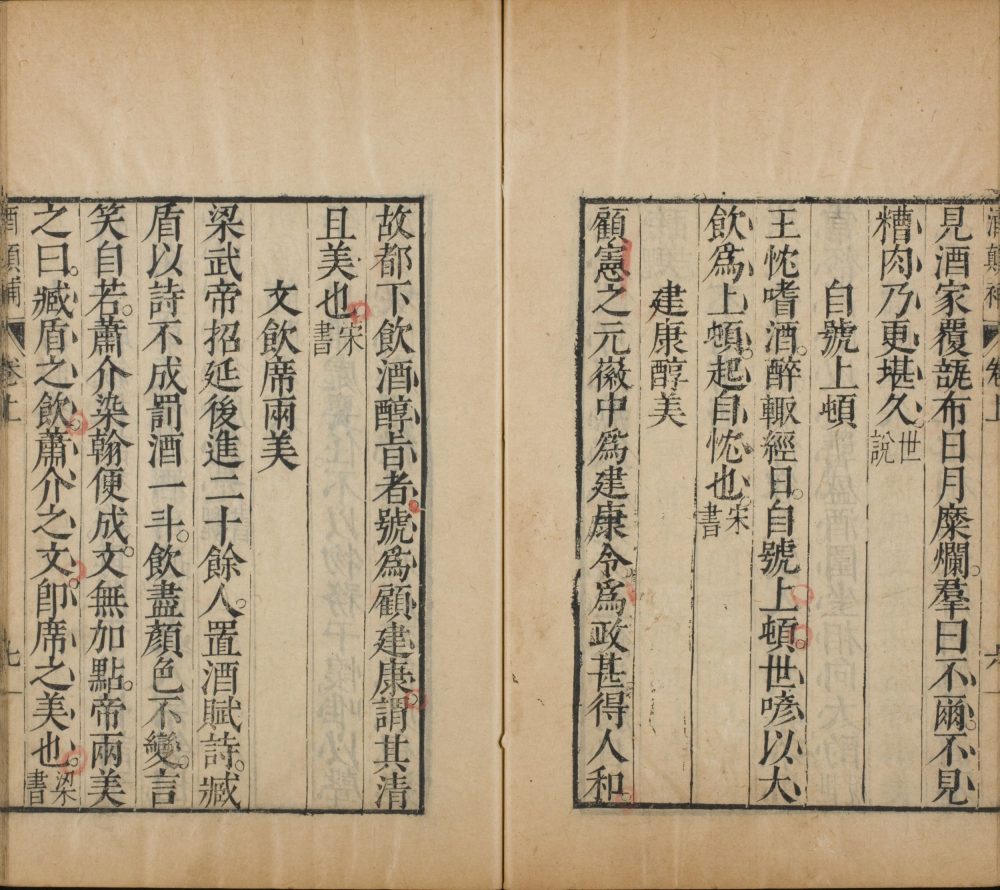 酒顛補 卷上 六
見酒家覆瓿布日月糜爛羣曰不爾不見
糟肉乃更堪久世說
自號上頓
王忱嗜酒醉輙經日自號上頓世喭以大
飲爲上頓起自忱也宋書
建康醇美
顧憲之元徽中爲建康令爲政甚得人和
故都下飲酒醇旨者號爲顧建康謂其清
且美也宋書
文飲席兩美
梁武帝招延後進二十餘人置酒賦詩臧
盾以詩不成罰酒一斗飲盡顏色不變言
笑自若蕭介染翰便成文無加點帝兩美
之曰臧盾之飲蕭介之文卽席之美也梁書
酒顛補 卷上 七